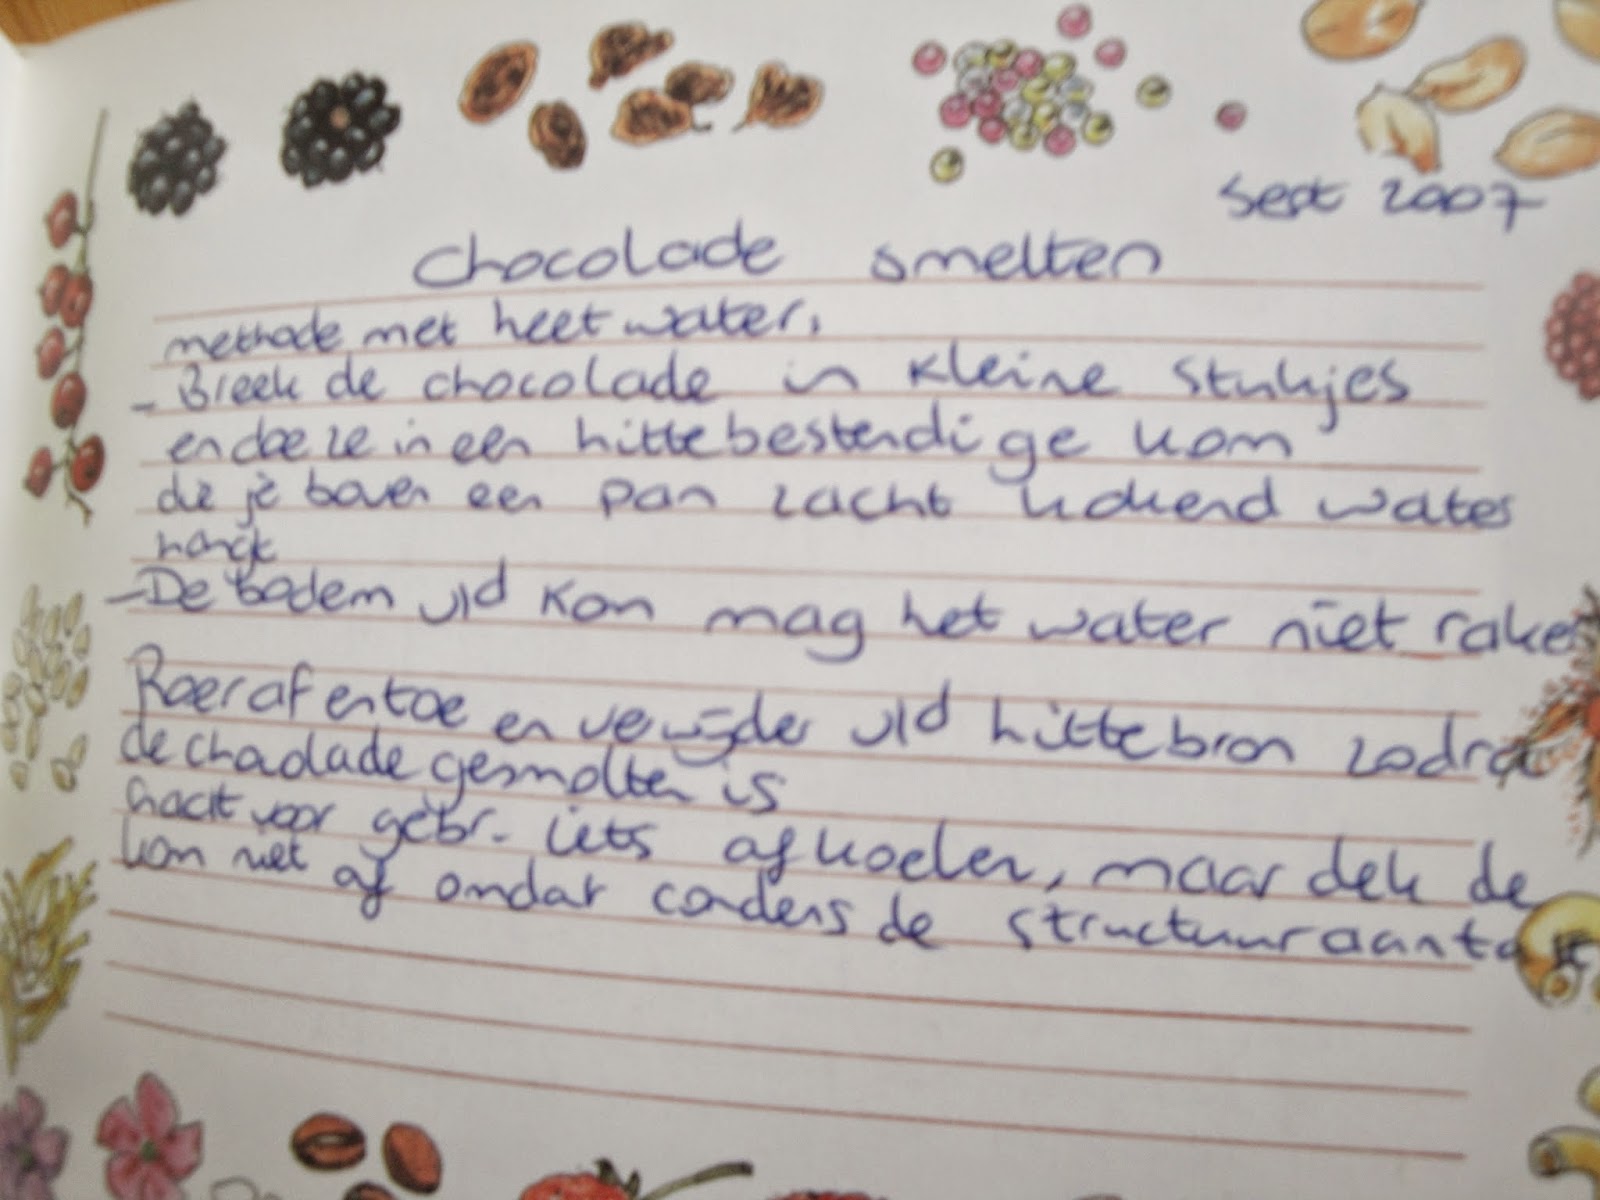 Sept 2007
Chocolade smelten
methode met heet water.
- Breek de chocolade in kleine stukjes
en doe ze in een hittebestendige kom
die je boven een pan zacht kokend water
hangt
- De bodem v/d kom mag het water niet raken
Roer af en toe en verwijder v/d hittebron zodra
de chocolade gesmolten is
Laat voor gebr. iets afkoelen, maar dek de
kom niet af omdat condens de structuur aantast